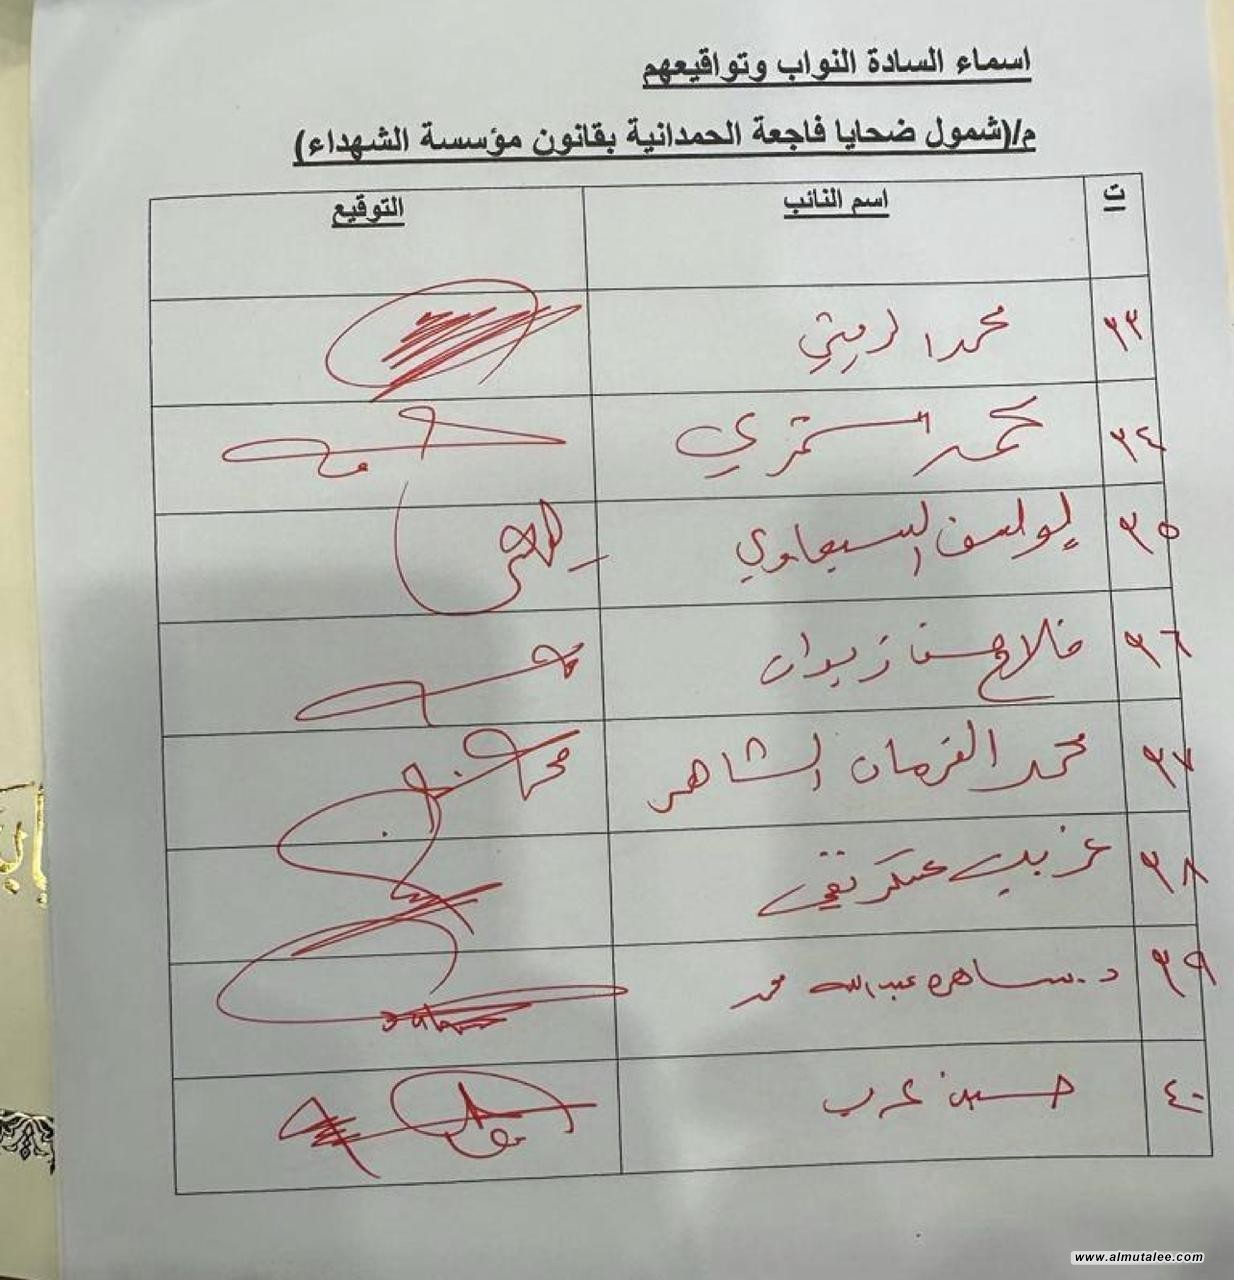 اسماء السادة النواب وتواقيعهم
م/(شمول ضحايا فاجعة الحمدانية بقانون مؤسسة الشهداء)
ت اسم النائب التوقيع
٣٣ محمد
٣٤ محمد الشمري
٣٥ السبعاوي
٣٦ فلاح حسن زيدان
٣٧ محمد الفرمان الشاهر
٣٨ غريب عسكر تقي
٣٩ د. ساهره عبدالله محمد
٤٠ حسين عرب
www.almutalee.com